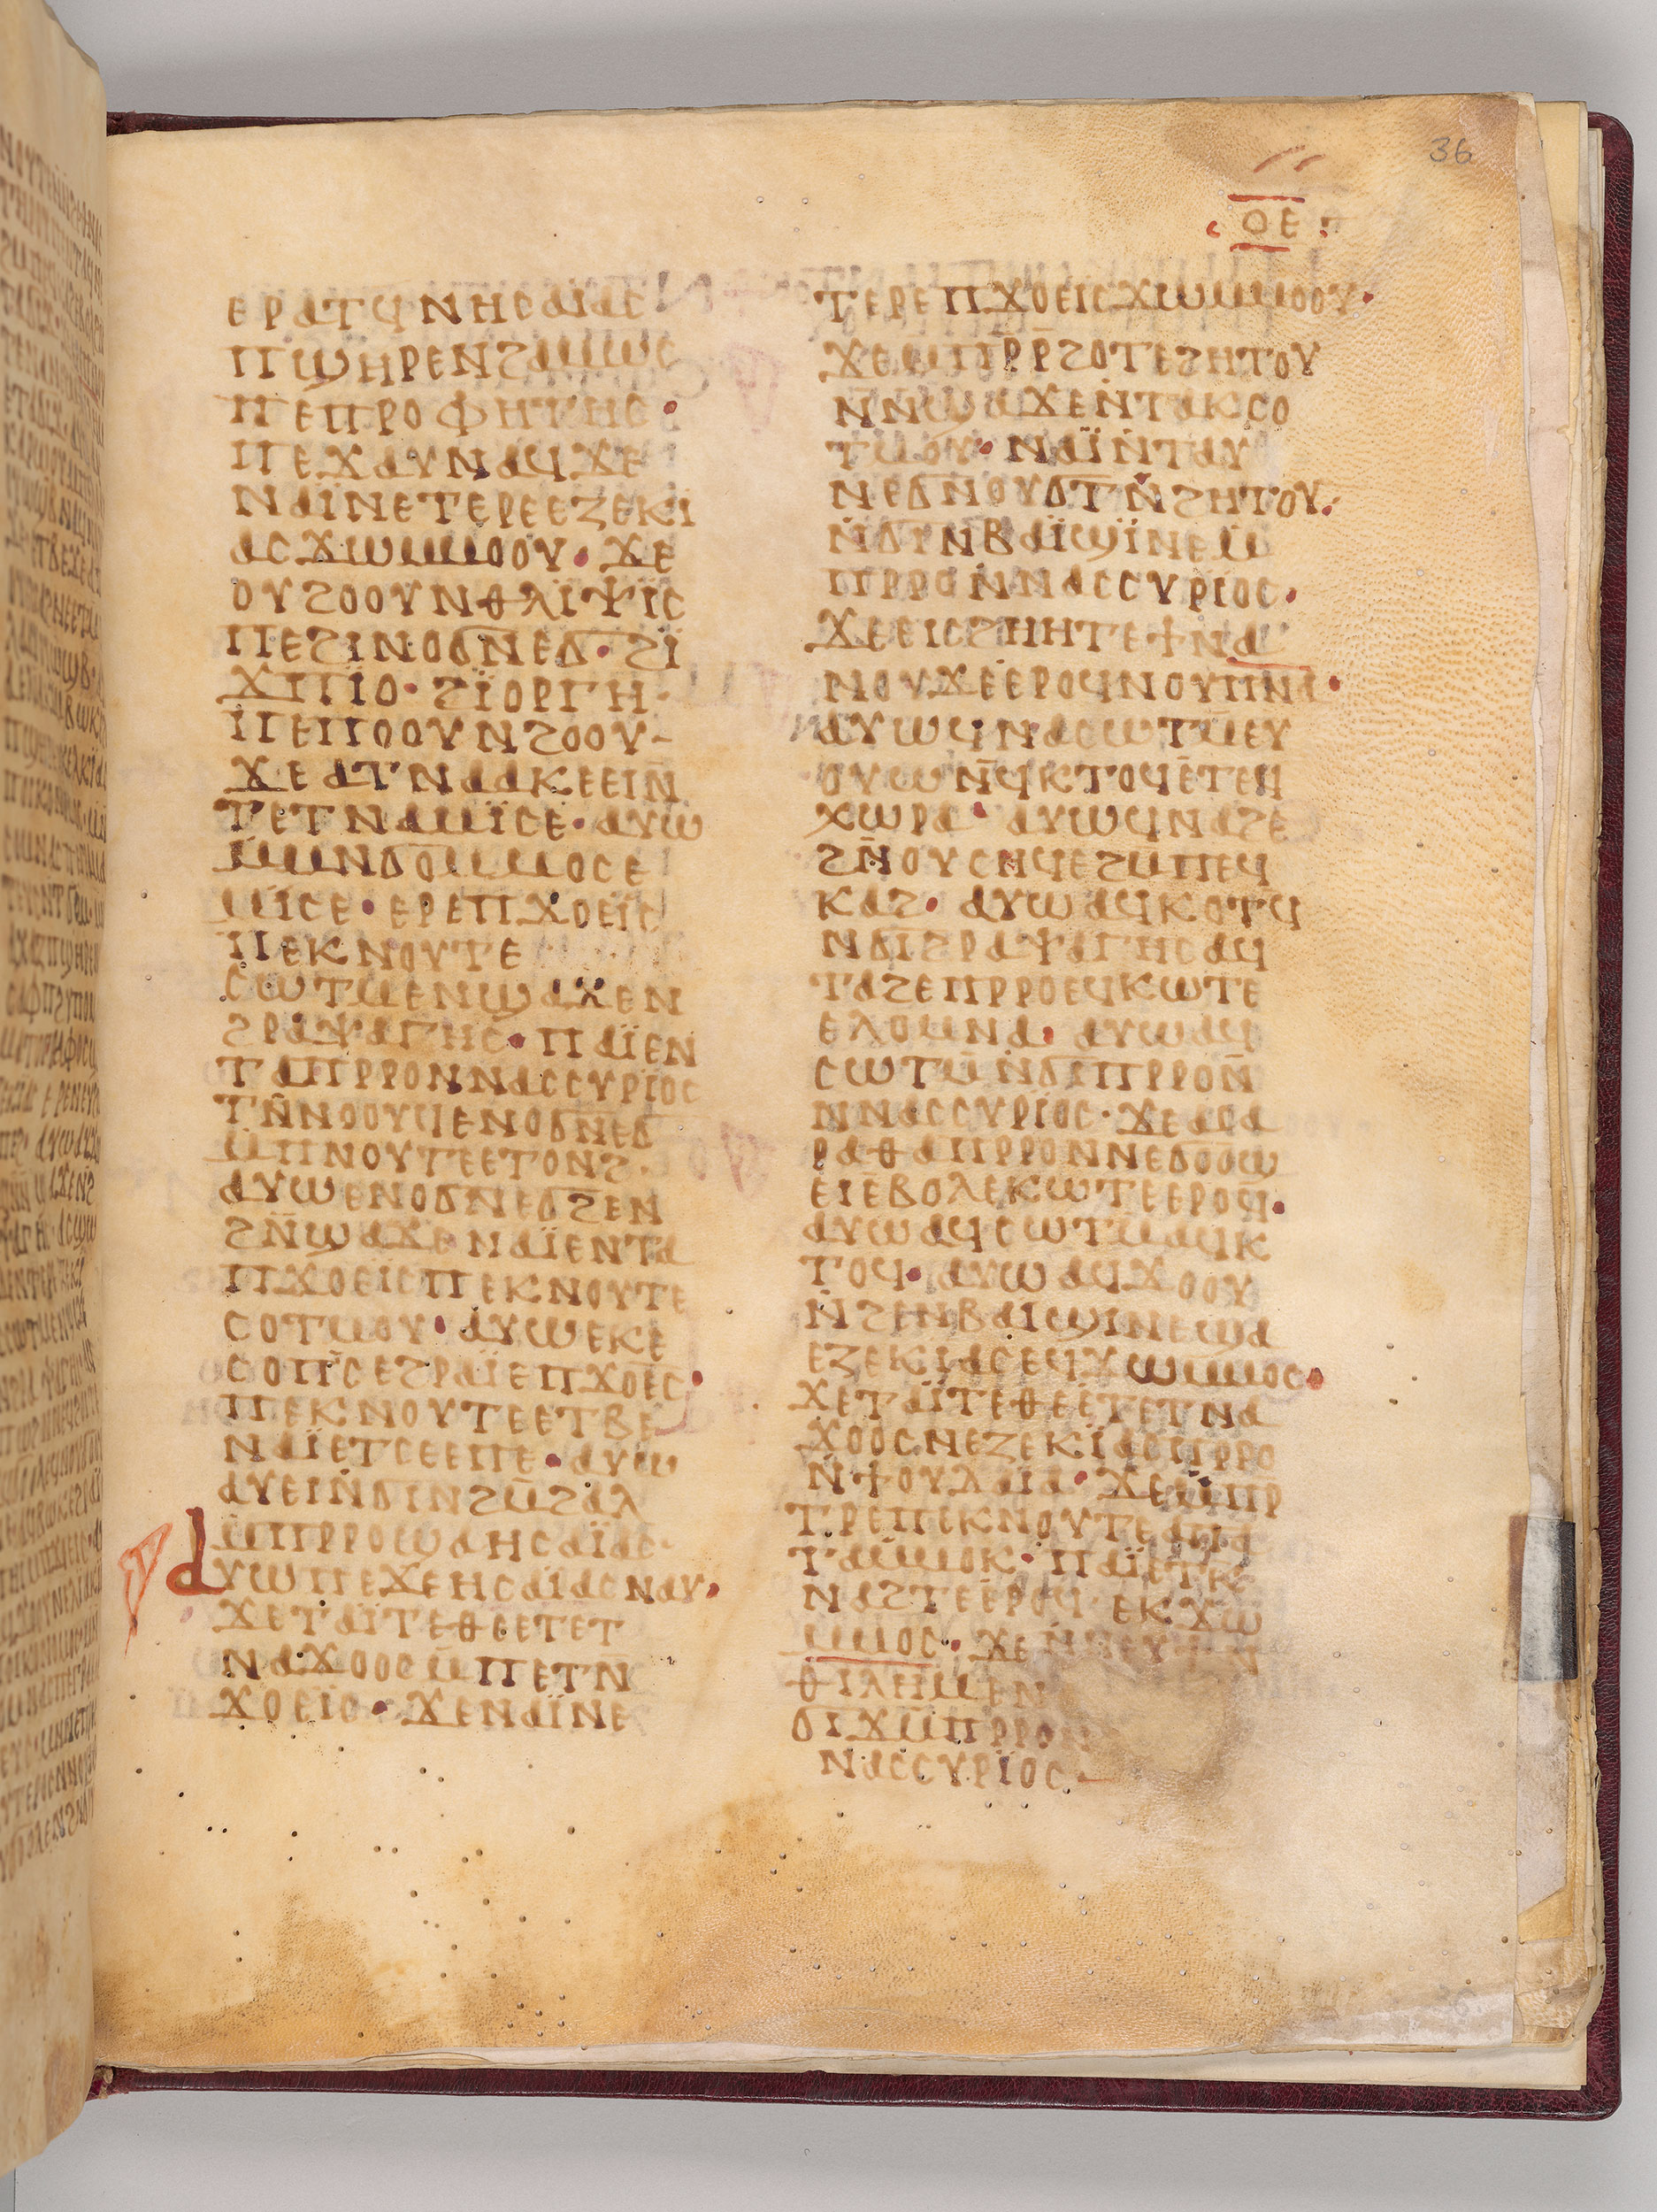 36
ⲟⲉ
ⲉⲣⲁⲧϥⲛⲏⲥⲁⲓⲁⲥ
ⲡϣⲏⲣⲉⲛϩⲁⲙⲱⲥ
ⲡⲉⲡⲣⲟⲫⲏⲧⲏⲥ·
ⲡⲉϫⲁⲩⲛⲁϥϫⲉ
ⲛⲁⲓ̈ⲛⲉⲧⲉⲣⲉⲉⲍⲉⲕⲓ
ⲁⲥϫⲱⲙⲙⲟⲟⲩ· ϫⲉ
ⲟⲩϩⲟⲟⲩⲛⲑⲗⲓⲯⲓ̈ⲥ
ⲡⲉϩⲓⲛⲟϭⲛⲉϭ· ϩⲓ̈
ϫⲡⲓ̈ⲟ· ϩⲓ̈ⲟⲣⲅⲏ·
ⲡⲉⲡⲟⲟⲩⲛϩⲟⲟⲩ-
ϫⲉⲁⲧⲛⲁⲁⲕⲉⲉⲓⲛ̄
ⲧⲉⲧⲛⲁⲙⲓ̈ⲥⲉ· ⲁⲩⲱ
ⲙⲙⲛϭⲟⲙⲙⲟⲥⲉ
ⲙⲓ̈ⲥⲉ· ⲉⲣⲉⲡϫⲟⲉⲓ̈ⲥ
ⲡⲉⲕⲛⲟⲩⲧⲉ
ⲥⲱⲧⲙⲉⲛϣⲁϫⲉⲛ
ϩⲣⲁⲯⲁⲅⲏⲥ· ⲡⲁⲓ̈ⲉⲛ
ⲧⲁⲡⲣⲣⲟⲛⲛⲁⲥⲥⲩⲣⲓⲟⲥ
ⲧⲛ̄ⲛⲟⲟⲩϥⲉⲛⲟϭⲛⲉϭ
ⲙⲡⲛⲟⲩⲧⲉⲉⲧⲟⲛϩ·
ⲁⲩⲱⲉⲛⲟϭⲛⲉϭϩⲉⲛ
ϩⲛ̄ϣⲁϫⲉⲛⲁⲓ̈ⲉⲛⲧⲁ
ⲡϫⲟⲉⲓⲥⲡⲉⲕⲛⲟⲩⲧⲉ
ⲥⲟⲧⲙⲟⲩ· ⲁⲩⲱⲉⲕⲉ
ⲥⲟⲡⲥⲉϩⲣⲁⲓ̈ⲉⲡϫⲟⲉⲥ·
ⲡⲉⲕⲛⲟⲩⲧⲉⲉⲧⲃⲉ
ⲛⲁⲓ̈ⲉⲧⲥⲉⲉⲡⲉ· ⲁⲩⲱ
ⲁⲩⲉⲓⲛ̇ϭⲓⲛϩⲙ̄ϩⲁⲗ
ⲙⲡⲣⲣⲟϣⲁⲏⲥⲁⲓ̈ⲁⲥ·
ⲁⲩⲱⲡⲉϫⲉⲏⲥⲁⲓ̈ⲁⲥⲛⲁⲩ·
ϫⲉⲧⲁⲓ̈ⲧⲉⲑⲉⲉⲧⲉⲧ
ⲛⲁϫⲟⲟⲥⲙ̄ⲡⲉⲧⲛ
ϫⲟⲉⲓⲥ· ϫⲉⲛⲁⲓ̈ⲛⲉ
ⲧⲉⲣⲉⲡϫⲟⲉⲓⲥϫⲱⲙⲙⲟⲟⲩ·
ϫⲉⲙⲡⲣ̄ⲣ̄ϩⲟⲧⲉϩⲏⲧⲟⲩ
ⲛⲛϣⲁϫⲉⲛ̇ⲧⲁⲕⲥⲟ
ⲧⲙⲟⲩ· ⲛⲁⲓ̈ⲛ̇ⲧⲁⲩ
ⲛⲉϭⲛⲟⲩϭⲧⲛ̇ϩⲏⲧⲟⲩ·
ⲛ̇ϭⲓⲛⲃⲁⲓ̈ϣⲓ̈ⲛⲉⲙ̄
ⲡⲣⲣⲟⲛ̇ⲛⲁⲥⲥⲩⲣⲓⲟⲥ·
ϫⲉⲉⲓⲥϩⲏⲏⲧⲉϯⲛⲁ
ⲛⲟⲩϫⲉⲉⲣⲟϥⲛⲟⲩⲡⲛⲁ·
ⲁⲩⲱϥⲛⲁⲥⲱⲧⲙⲉⲩ
ⲟⲩⲱⲛ̄ϥⲕⲧⲟϥⲉ̇ⲧⲉϥ
ⲭⲱⲣⲁ· ⲁⲩⲱϥⲛⲁϩⲉ
ϩⲛ̄ⲟⲩⲥⲏϥⲉϩⲙⲡⲉϥ
ⲕⲁϩ· ⲁⲩⲱⲁϥⲕⲟⲧϥ
ⲛϭⲓϩⲣⲁⲯⲁⲅⲏⲥⲁϥ
ⲧⲁϩⲉⲡⲣⲣⲟⲉϥⲕⲱⲧⲉ
ⲉⲗⲟⲙⲛⲁ· ⲁⲩⲱⲁϥ
ⲥⲱⲧⲙ̄ⲛ̇ϭⲓⲡⲣⲣⲟⲛ̄
ⲛⲛⲁⲥⲥⲩⲣⲓⲟⲥ· ϫⲉⲁⲥⲁ
ⲣⲁⲑⲁⲡⲣⲣⲟⲛⲛⲉϭⲟⲟϣ
ⲉⲓⲉⲃⲟⲗⲉⲕⲱⲧⲉⲉⲣⲟϥ·
ⲁⲩⲱⲁϥⲥⲱⲧⲙⲁϥⲕ
ⲧⲟϥ· ⲁⲩⲱⲁϥϫⲟⲟⲩ
ⲛ̇ϩⲉⲛⲃⲁⲓϣⲓⲛⲉϣⲁ
ⲉⲍⲉⲕⲓⲁⲥⲉϥϫⲱⲙⲙⲟⲥ·
ϫⲉⲧⲁⲓ̈ⲧⲉⲑⲉⲉⲧⲉⲧⲛⲁ
ϫⲟⲟⲥⲛⲉⲍⲉⲕⲓ̈ⲁⲥⲡⲣⲣⲟ
ⲛ̇ϯⲟⲩⲇⲁⲓⲁ· ϫⲉⲙ̄ⲡⲣ
ⲧⲣⲉⲡⲉⲕⲛⲟⲩⲧⲉⲁⲡⲁ
ⲧⲁⲙⲙⲟⲕ· ⲡⲁⲓ̈ⲉⲧⲕ
ⲛⲁϩⲧⲉⲉⲣⲟϥ· ⲉⲕϫⲱ
ⲙⲙⲟⲥ· ϫⲉⲛ̇
ⲑⲓⲗⲏⲙⲉⲛ
ϭⲓϫⲙ̄ⲡⲣⲣⲟⲛ
ⲛⲁⲥⲥⲩⲣⲓ̈ⲟⲥ